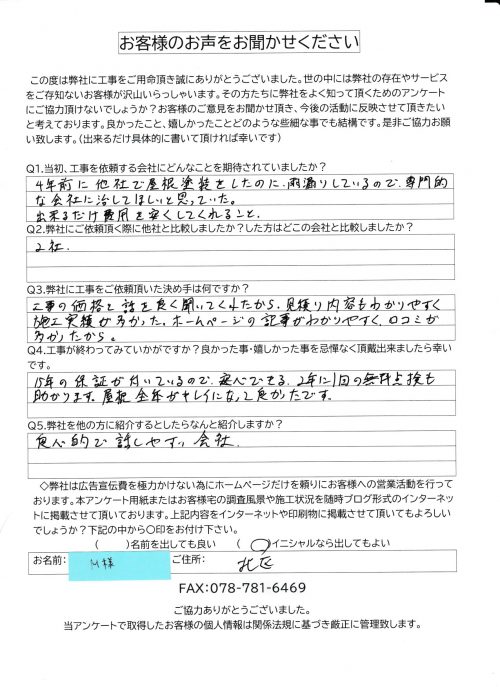 お客様のお声をお聞かせください
この度は弊社に工事をご用命頂き誠にありがとうございました。世の中には弊社の存在やサービス
をご存知ないお客様が沢山いらっしゃいます。その方たちに弊社をよく知って頂くためのアンケート
にご協力頂けないでしょうか？お客様のご意見をお聞かせ頂き、今後の活動に反映させて頂きたい
と考えております。良かったこと、嬉しかったことどのような些細な事でも結構です。是非ご協力お願
い致します。（出来るだけ具体的に書いて頂ければ幸いです）
Q1.当初、工事を依頼する会社にどんなことを期待されていましたか？
4年前に他社で屋根塗装をしたのに、雨漏りしているので、専門的
な会社に治してほしいと思っていた。
出来るだけ費用を安くしてくれること。
Q2.弊社にご依頼頂く際に他社と比較しましたか？した方はどこの会社と比較しましたか？
2社.
Q3.弊社に工事をご依頼頂いた決め手は何ですか？
工事の価格と話を良く聞いてくれたから、見積り内容もわかりやすく
施工実績が多かった。ホームページの記事がわかりやすく、口コミが
多かったから。
Q4.工事が終わってみていかがですか？良かった事・嬉しかった事を忌憚なく頂戴出来ましたら幸い
です。
15年の保証が付いているので、安心できる。2年に1回の無料点検も
助かります。屋根全体がキレイになって良かったです。
Q5.弊社を他の方に紹介するとしたらなんと紹介しますか？
良心的で話しやすい会社
◇弊社は広告宣伝費を極力かけない為にホームページだけを頼りにお客様への営業活動を行って
おります。本アンケート用紙またはお客様宅の調査風景や施工状況を随時ブログ形式のインターネッ
トに掲載させて頂いております。上記内容をインターネットや印刷物に掲載させて頂いてもよろしい
でしょうか？下記の中から○印をお付け下さい。
（　　）名前を出しても良い　（　○）イニシャルなら出してもよい
お名前：　M様　ご住所：　北区
FAX:078-781-6469
ご協力ありがとうございました。
当アンケートで取得したお客様の個人情報は関係法規に基づき厳正に管理致します。